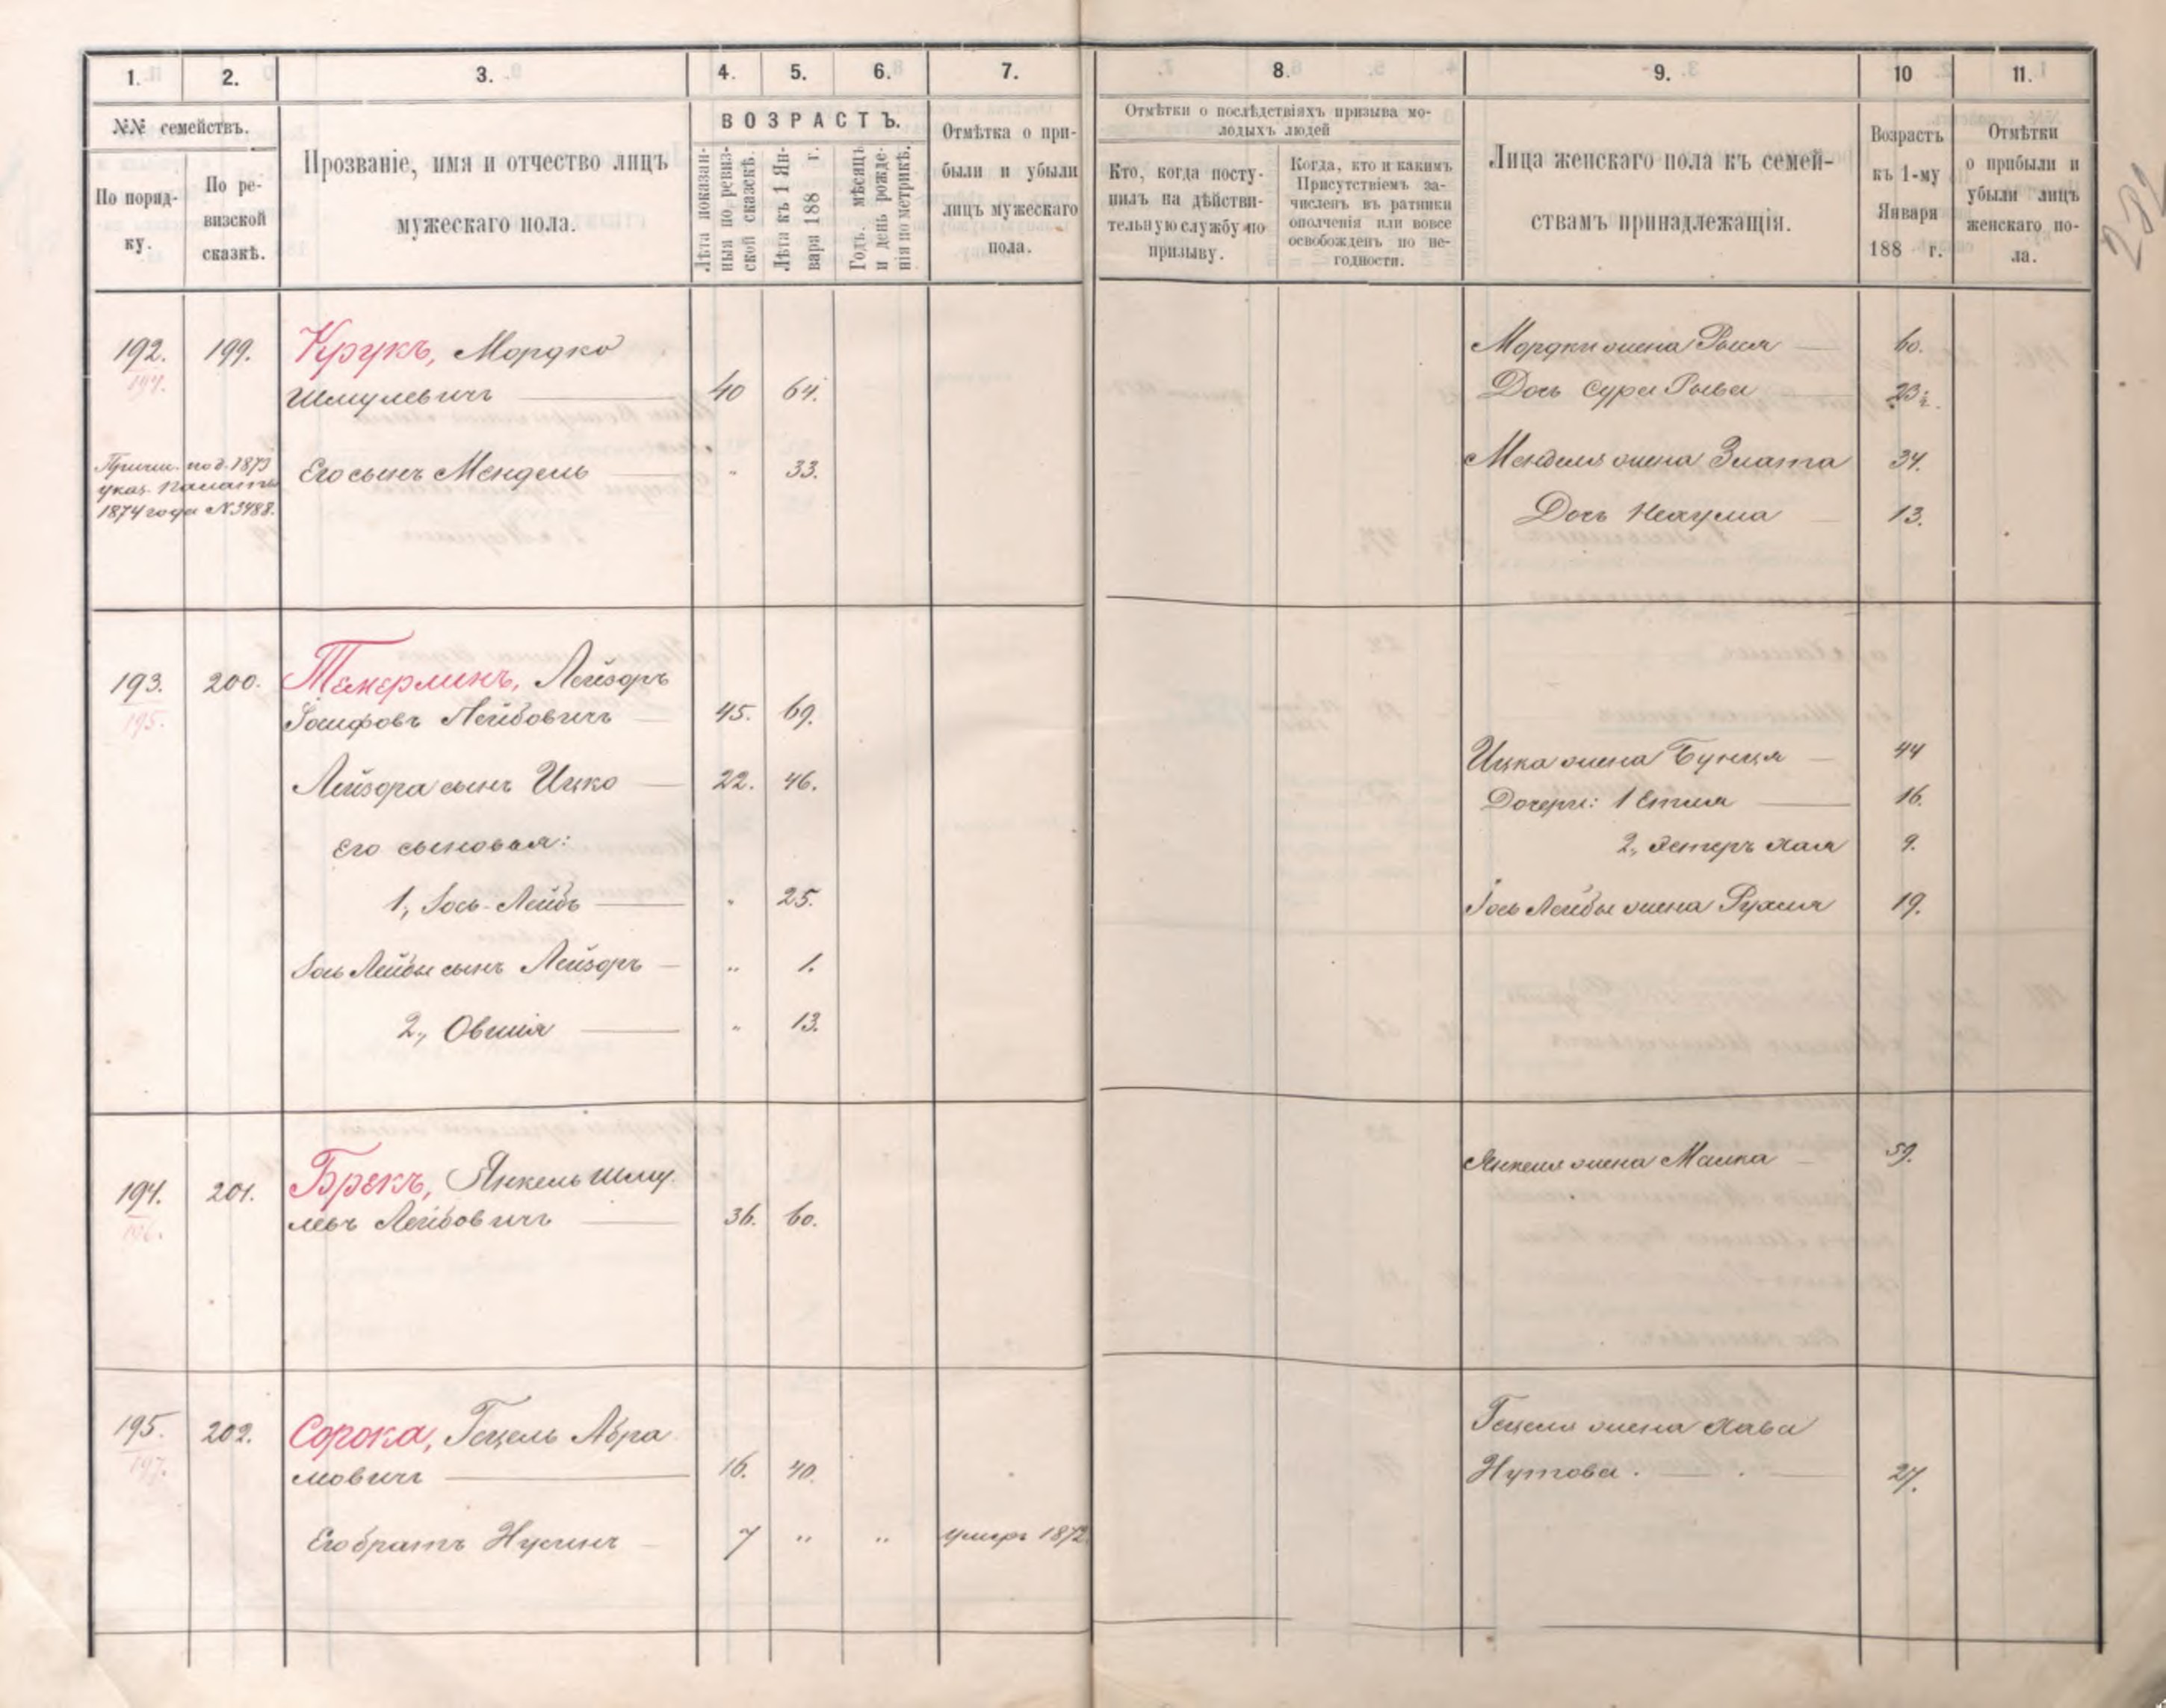 1. 2. 3. 4. 5. 6. 7. 8. 9. 10 11.
№№ семействъ.
По порядку.
По ревизской сказкѣ.
Прозваніе, имя и отчество лицъ
мужескаго пола.
ВОЗРАСТЪ.
Лѣта показанныя по ревизской сказкѣ.
Лѣта къ 1 Января 188 г.
Годъ, мѣсяцъ и день рожденія по метрикѣ.
Отмѣтка о прибыли и убыли лицъ мужескаго пола.
Отмѣтки о послѣдствіяхъ призыва молодыхъ людей
Кто, когда поступилъ на дѣйствительную службу по призыву.
Когда, кто и какимъ Присутствіемъ зачисленъ въ ратники ополченія или вовсе освобожденъ по негодности.
Лица женскаго пола къ семействамъ принадлежащія.
Возрастъ къ 1-му Января 188 г.
Отмѣтки о прибыли и убыли лицъ женскаго пола.
282
192. 199. Крукъ, Мордко
194.
Шмулевичъ 40 64.
Причи. по д. 1873
указ. Палаты
1874 года №3488.
Его сынъ Мендель " 33.
Мордки жена Рыся 60.
Дочь Сура Рыва
Менделя жена Злата 34.
Дочь Нехума 13.
193. 200. Текерлинъ, Лейзоръ
195.
Іосифовъ Лейбовичъ 45. 69.
Лейзора сынъ Ицко 22. 46.
Его сыновья:
1, Іось-Лейбъ " 25.
Іось Лейбы сынъ Лейзоръ " 1.
2, Овшія " 13.
Ицка жена Бунця 44
Дочери: 1 Етля 16.
2, Эстеръ Хая 9.
Іось Лейбы жена Рухля 19.
194. 201. Брекъ, Янкель Шму
196.
левъ Лейбовичъ 36. 60.
Янкеля жена Малка 59.
195. 202. Сорока, Гецель Абра
197.
мовичъ 16. 40.
Его братъ Нухимъ 7 " " умеръ 1872
Гецеля жена Хава
Нутова. 27.